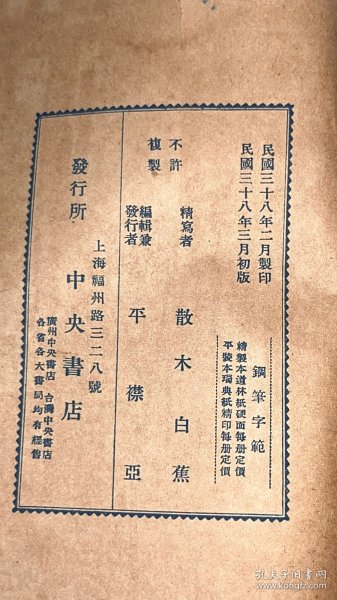 民國三十八年二月製印
民國三十八年三月初版
鋼筆字範
精製本道林紙硬面每册定價
平裝本瑞典紙精印每册定價
不許
複製
精寫者 散木 白蕉
編輯兼
發行者 平襟亞
上海福州路三二八號
發行所 中央書店
廣州中央書店 台灣中央書店
各省各大書局均有經售
孔夫子旧书网